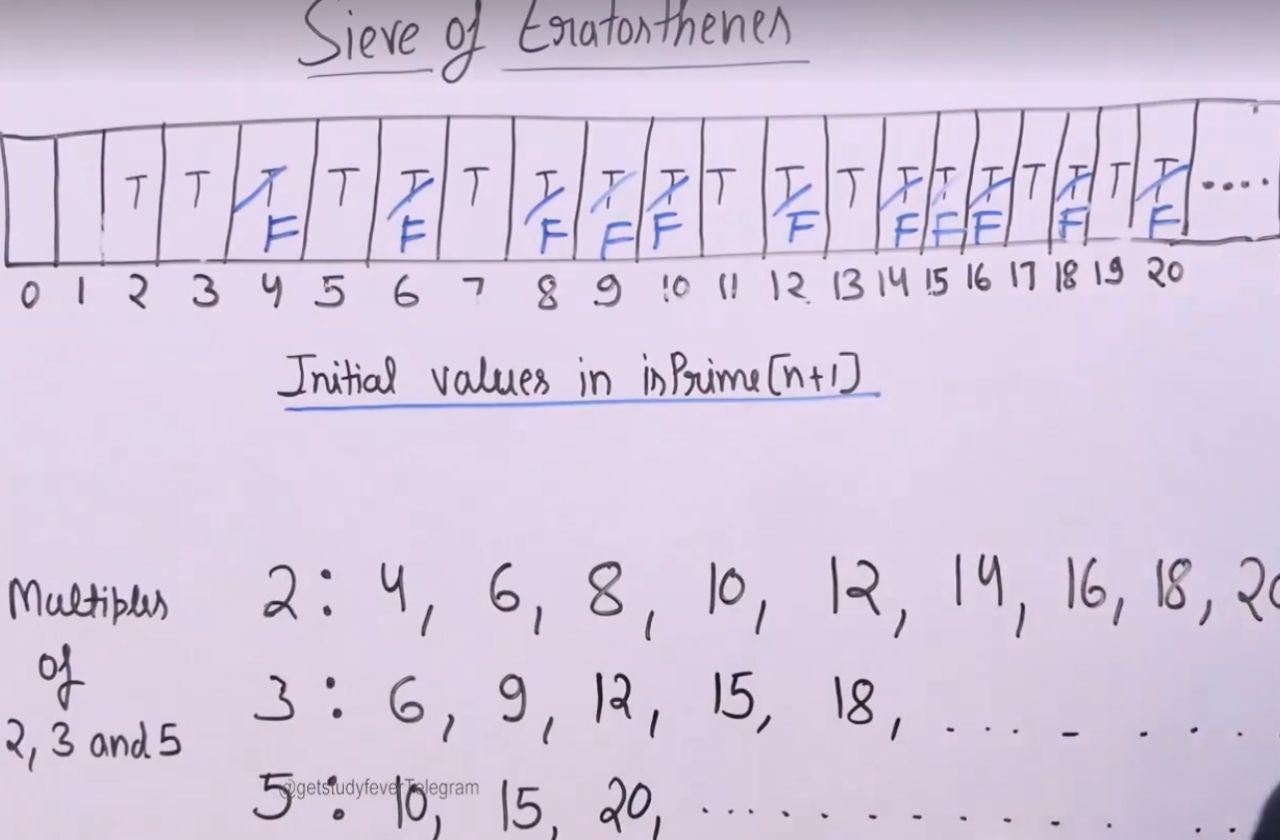 Sieve of Eratosthenes
T T T T T T T T T T T T T T T T T T T ....
F F F F F F F F F F F
0 1 2 3 4 5 6 7 8 9 10 11 12 13 14 15 16 17 18 19 20
Initial values in isPrime[n+1]
Multiples of 2, 3 and 5
2: 4, 6, 8, 10, 12, 14, 16, 18, 20
3: 6, 9, 12, 15, 18, ........
5: 10, 15, 20, ............
@getstudyfever Telegram